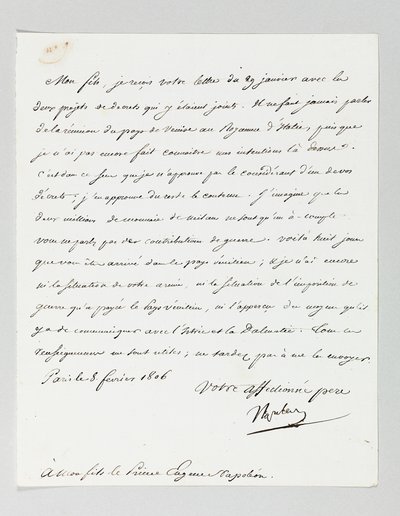 Mon fils, je reçois votre lettre du 29 janvier avec les
deux projets de decrets qui y étaient joints. Il ne faut jamais parler
de la réunion du pays de Venise au Royaume d'Italie, puisque
je n'ai pas encore fait connaitre mes intentions là dessus.
C'est dans ce sens que je n'approuve pas le considérant d'un de vos
décrets; j'en approuve du reste le contenu. J'imagine que les
deux millions de monnaie de Milan ne sont qu'un à-compte
vous ne parlez pas des contributions de guerre. voilà huit jours
que vous êtes arrivé dans le pays vénitien; & je n'ai encore
ni la situation de votre armée, ni la situation de l'imposition de
guerre qu'a payée le Pays vénitien, ni l'apperçu du moyen qu'il
y a de communiquer avec l'Istrie et la Dalmatie. Tous ces
renseignemens me sont utiles; ne tardez pas à me les envoyer
Paris le 8 février 1806
Votre affectionné pere
A Mon fils le Prince Eugene Napoléon.